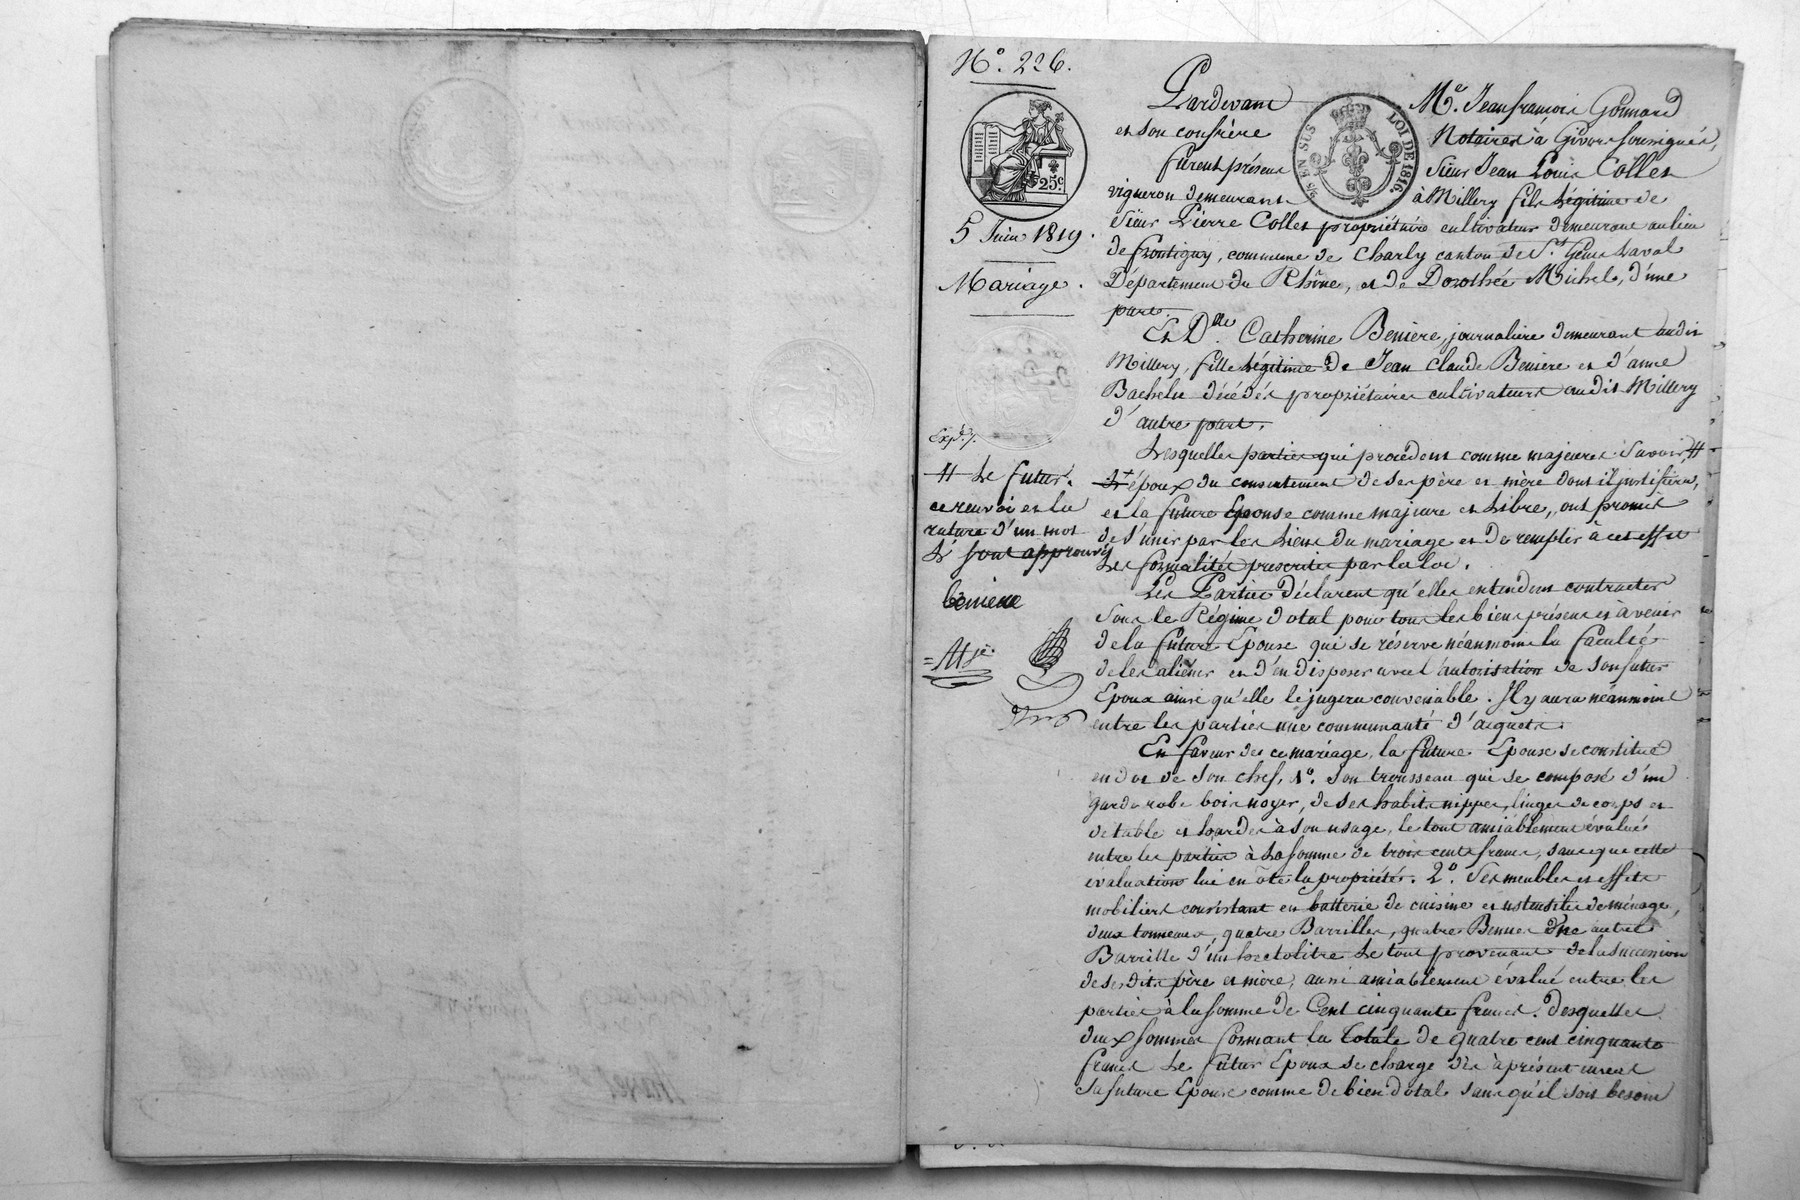 N.° 226.
25c
5 Juin 1819.
Mariage.
Expé. f.
# Le futur.
ce renvoi et la
rature d'un mot
L' sont approuvés
beniere
Pardevant Me. Jean françois Gonnard
EN SUS LOI DE 1816.
et son confrère Notaires à Givors soussignés,
furent présens Sieur Jean Louis Collet
vigneron demeurant à Millery fils légitime de
Sieur Pierre Collet propriétaire cultivateur demeurant au lieu
de frontigny, commune de Charly canton de St. Genis Laval
Département du Rhône, et de Dorothée Michel, d'une
part.
Et Dlle. Catherine Beniere, journaliere demeurant audit
Millery, fille légitime de Jean Claude Beniere et d'anne
Bachelu décédés propriétaires cultivateurs audit Millery
d'autre part.
Lesquelles parties qui procèdent comme majeures savoir, #
L' époux du consentement de ses père et mère dont il justifiera,
et la future Epouse comme majeure et libre, ont promis
de s'unir par les liens du mariage et de remplir à cet effet
les formalités prescrites par la loi.
Les Parties déclarent qu'elles entendent contracter
sous le Régime dotal pour tous les biens présens et à venir
de la future Epouse qui se réserve néanmoins la faculté
de les aliéner et d'en disposer avec l'autorisation de son futur
Epoux ainsi qu'elle le jugera convenable. Il y aura néanmoins
entre les parties une communauté d'acquets.
En faveur de ce mariage, la future Epouse se constitue
en dot de son chef, 1°. son trousseau qui se compose d'une
garde robe bois noyer, de ses habits nippes, linges de corps et
de table et hardes à son usage, le tout amiablement évalué
entre les parties à la somme de trois cents francs, sans que cette
évaluation lui en ôte la propriété. 2°. Ses meubles et effets
mobiliers consistant en batterie de cuisine et ustensiles de ménage,
deux tonneaux, quatre Barrilles, quatre Bennes une autre
Barrille d'un hectolitre le tout provenant de la succession
de ses dits père et mère, aussi amiablement évalué entre les
parties à la somme de Cent cinquante francs. Desquelles
deux sommes formant la totale de quatre cent cinquante
francs le futur Epoux se charge dès à présent envers
sa future Epouse comme de bien dotal sans qu'il soit besoin